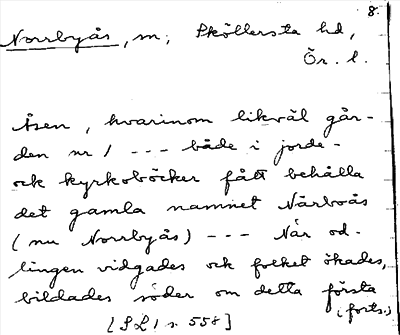 8.
Norrbyås, sn; Sköllersta hd,
Ör. l.
Åsen, hvarinom likväl går-
den nr 1 --- både i jorde-
och kyrkoböcker fått behålla
det gamla namnet Närboås
(nu Norrbyås) --- När od-
lingen vidgades och folket ökades,
bildades söder om detta första
(forts.)
[SL 1 s. 558]